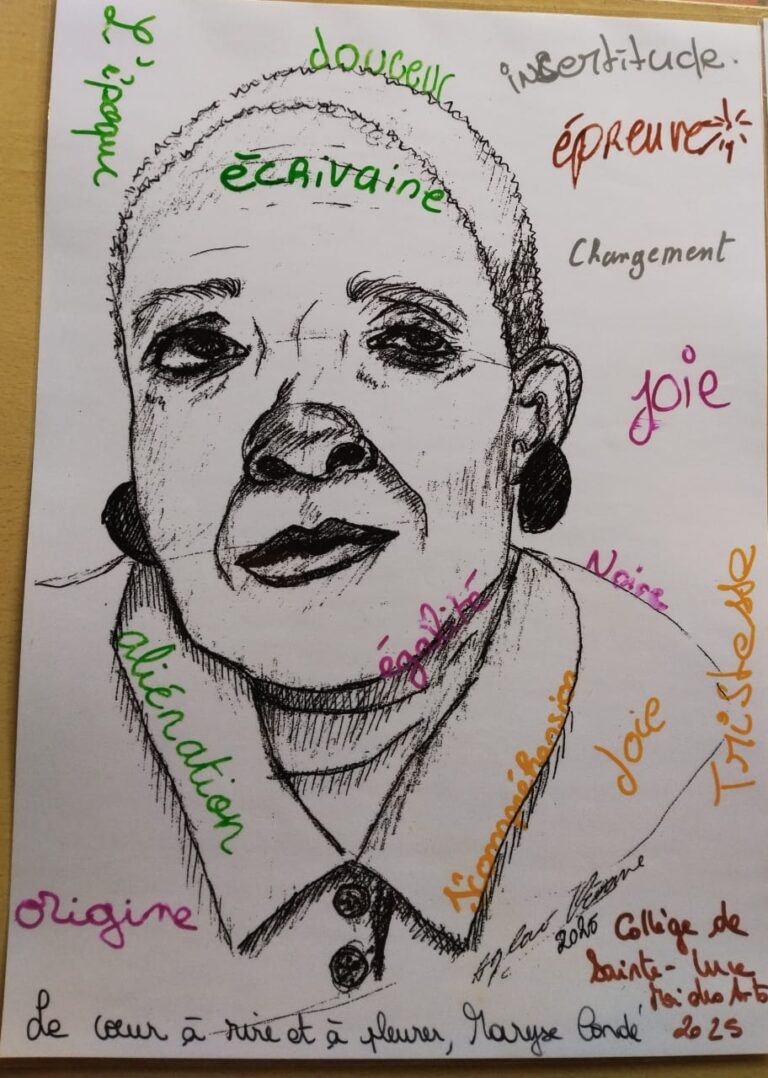 L'époque
douceur
insertitude.
épreuve
écrivaine
Changement
joie
Noire
égalité
Tristesse
aliénation
Joie
l'compréhension
origine
2025
Collège de
Sainte-Luce
Moi des Arts
2025
Le cœur à rire et à pleurer, Maryse Condé